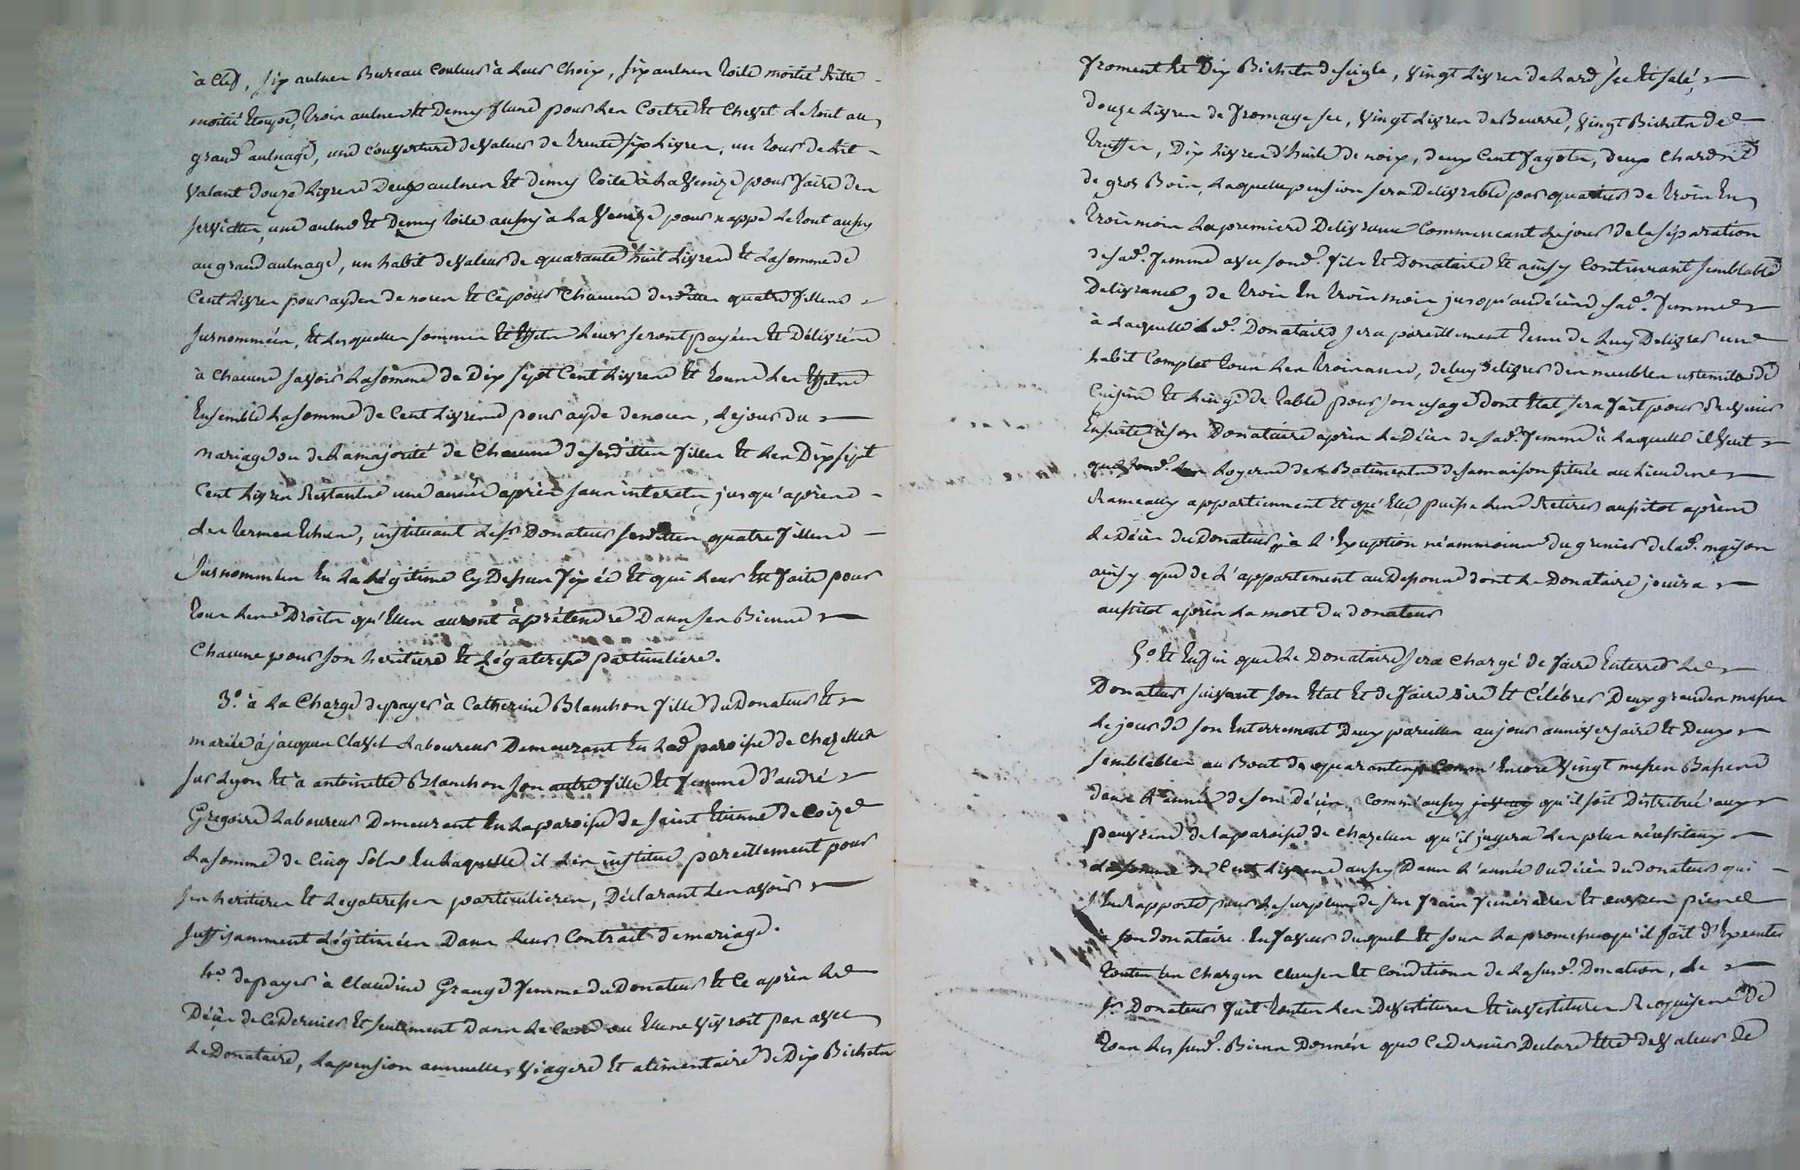 à Clef, six aulnes Bureau Couleur à Leur Choix, six aulnes Toile moitié Ritte
moitié Etoupe, Trois aulnes Et Demy flene pour Les Coetre Et Chevet Le Tout au
grand aulnage, une couverture de Valeur de Trente six Livres, un Tour de Lit
Valant douze Livres Deux aulnes Et demy Toile à La Venize pour faire des
serviettes, une aulne Et Demy Toile aussy à La Venize pour nappe Le Tout aussy
au grand aulnage, un habit de Valeur de quarante huit Livres Et La somme de
Cent Livres pour ayder de nocer Et Ce pour Chacune desdittes quatre filles
surnommées, Et Lesquelles sommes Et Effets Leur seront payées Et Délivrés
à chacune savoir La somme de Dix sept Cent Livres Et Tous Les Effets
Ensemble La somme de Cent Livres pour ayde de nocer, Le jour du
mariage ou de La majorité de Chacune de sesdittes filles Et Les Dix sept
Cent Livres Restantes une année après sans interets jusqu'après
Les Termes Echus, instituant Led. sr Donateur sesdittes quatre filles
surnommées En La Légitime Cy Dessus fixée Et qui Leur Est faite pour
Tous Les Droits qu'Elles auront à prétendre Dans ses Biens
Chacune pour son heritiere Et Légateresse particuliére.
3.º à La Charge de payer à Catherine Blanchon fille du Donateur Et
mariée à jacques Classet Laboureur Demeurant En Lad. paroisse de Chazelles
sur Lyon Et à antoinette Blanchon son autre fille Et femme d'andré
Gregoire Laboureur Demeurant En La paroisse de Saint Etienne de Coize
La somme de Cinq Sols En Laquelle il Les institue pareillement pour
ses heritieres Et Legateresses particulieres, Déclarant Les avoir
suffisamment Légitimées Dans Leur Contrait de mariage.
4.º de payer à Claudine Grange femme du Donateur Et Ce après Le
Décès de Ce Dernier Et seulement Dans Le Cas ou Elle ne Vivroit pas avec
Le Donataire, La pension annuelle, Viagere Et alimentaire de Dix Bichets
froment Et Dix Bichets de seigle, Vingt Livres de Lard sec Et salé,
douze Livres de fromage sec, Vingt Livres de Beurre, Vingt Bichets de
Truffes, Dix Livres d'huile de noix, deux Cent fagots, deux Chards
de gros Bois, Laquelle pension sera Delivrable par quartier de Trois En
Trois mois La premiere Delivrance Commencant Le jour de la séparation
de sad. femme avec sond. fils Et Donataire Et ainsy Continuant semblable
Delivrance, de Trois En Trois mois jusqu'au décès de sad. femme
à Laquelle Led. Donataire sera pareillement Tenu de Luy Delivrer un
habit Complet Tous Les Trois ans, de luy delivrer des meubles ustensiles de
Cuisine Et Linge de Table pour son usage dont Etat sera fait pour Revenir
Ensuite à son Donataire après Le Décès de sad. femme à Laquelle il Veut
que Loyers des Batiments de sa maison située au Lieu des
Rameaux appartiennent Et qu'Elle puisse Les Retirer aussitot après
Le Décès du Donateur, à L'Exception néammoins du grenier de lad. maison
ainsy que de L'appartement au Dessous dont Le Donataire jouira
aussitot après La mort du donateur
5.º Et Enfin que Le Donataire sera Chargé de faire Enterrer Le
Donateur suivant son Etat Et de faire Dire Et Célébrer Deux grandes messes
Le jour de son Enterrement Deux pareilles au jour anniversaire Et Deux
semblables au Bout de quarantene, Comm' Encore Vingt messes Basses
dans L'année de son décès, Comm' aussy qu'il soit Distribué aux
pauvres de la paroisse de Chazelles qu'il jugera Les plus nécessiteux
La somme de Cent Livres aussy Dans L'année du décès du donateur qui
s'En rapporte pour Le surplus de ses frais funéraires Et œuvres pies
à son donataire. En faveur duquel Et sous La promesse qu'il fait d'Executer
Toutes Les Charges Clauses Et Conditions de La susd. Donation, Le
sr. Donateur fait Toutes Les Devestitures Et investitures Requises De
Tous Les susd. Biens Donnés que Ce Dernier Declare Etre de Valeur de